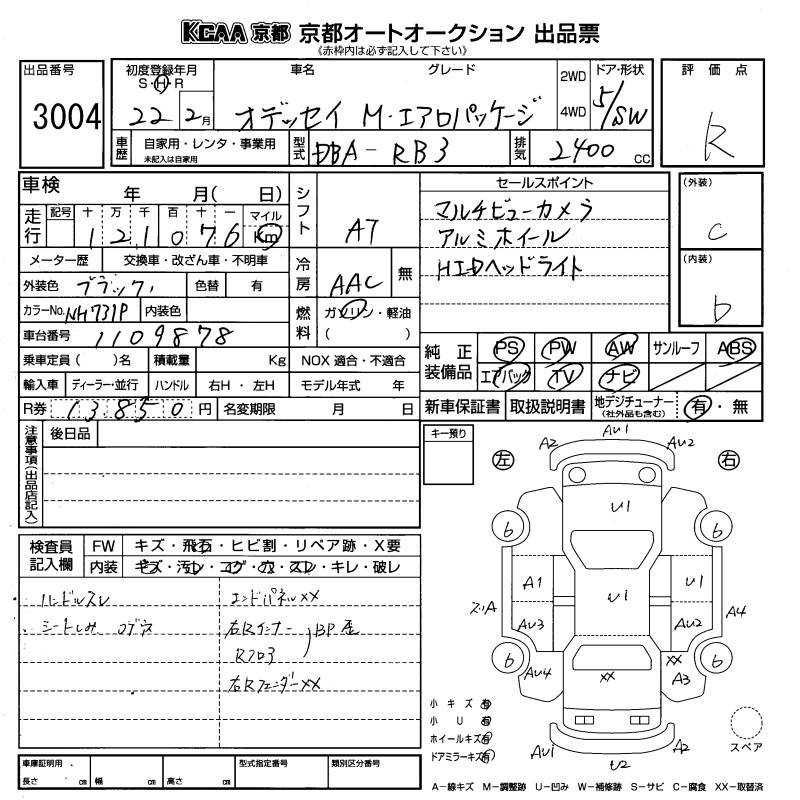 KCAA 京都 京都オートオークション 出品票
《赤枠内は必ず記入して下さい》
出品番号
3004
初度登録年月
S・H・R
22年2月
車名 グレード
オデッセイ M・エアロパッケージ
2WD
4WD
ドア・形状
5/SW
評価点
R
車歴
自家用・レンタ・事業用
未記入は自家用
型式
DBA-RB3
排気
2400 cc
車検 年 月( 日)
走行
記号 十 万 千 百 十 一 マイル
121076 Km
メーター歴 交換車・改ざん車・不明車
外装色 ブラック 色替 有
カラーNo. NH731P 内装色
車台番号 1109878
乗車定員 ( )名 積載量 Kg
輸入車 ディーラー・並行 ハンドル 右H・左H
R券 13,850円 名変期限 月 日
シフト
AT
冷房
AAC 無
燃料
ガソリン・軽油
( )
NOX 適合・不適合
モデル年式 年
セールスポイント
マルチビューカメラ
アルミホイール
HIDヘッドライト
(外装)
C
(内装)
b
純正装備品
PS PW AW サンルーフ ABS
エアバック TV ナビ
新車保証書 取扱説明書 地デジチューナー
(社外品も含む)
有・無
注意事項(出品店記入)
後日品
キー預り
検査員記入欄
FW キズ・飛石・ヒビ割・リペア跡・X要
内装 キズ・汚レ・コゲ・穴・スレ・キレ・破レ
ハンドルスレ
シートしみ コゲ穴
エンドパネルXX
右Rインナー
Rフロ3
BP歪
右RフェンダーXX
左 右
A2 AU1 AU2
U1
6 6
A1 U1 U1
ス.リA A4
AU3 AU2
6 6
AU4 XX XX A3
AU1 U2 A2
小キズ 有
小U 有
ホイールキズ 有
ドアミラーキズ(有)
スペア
車庫証明用
長さ cm 幅 cm 高さ cm
型式指定番号
類別区分番号
A-線キズ M-調整跡 U-凹み W-補修跡 S-サビ C-腐食 XX-取替済